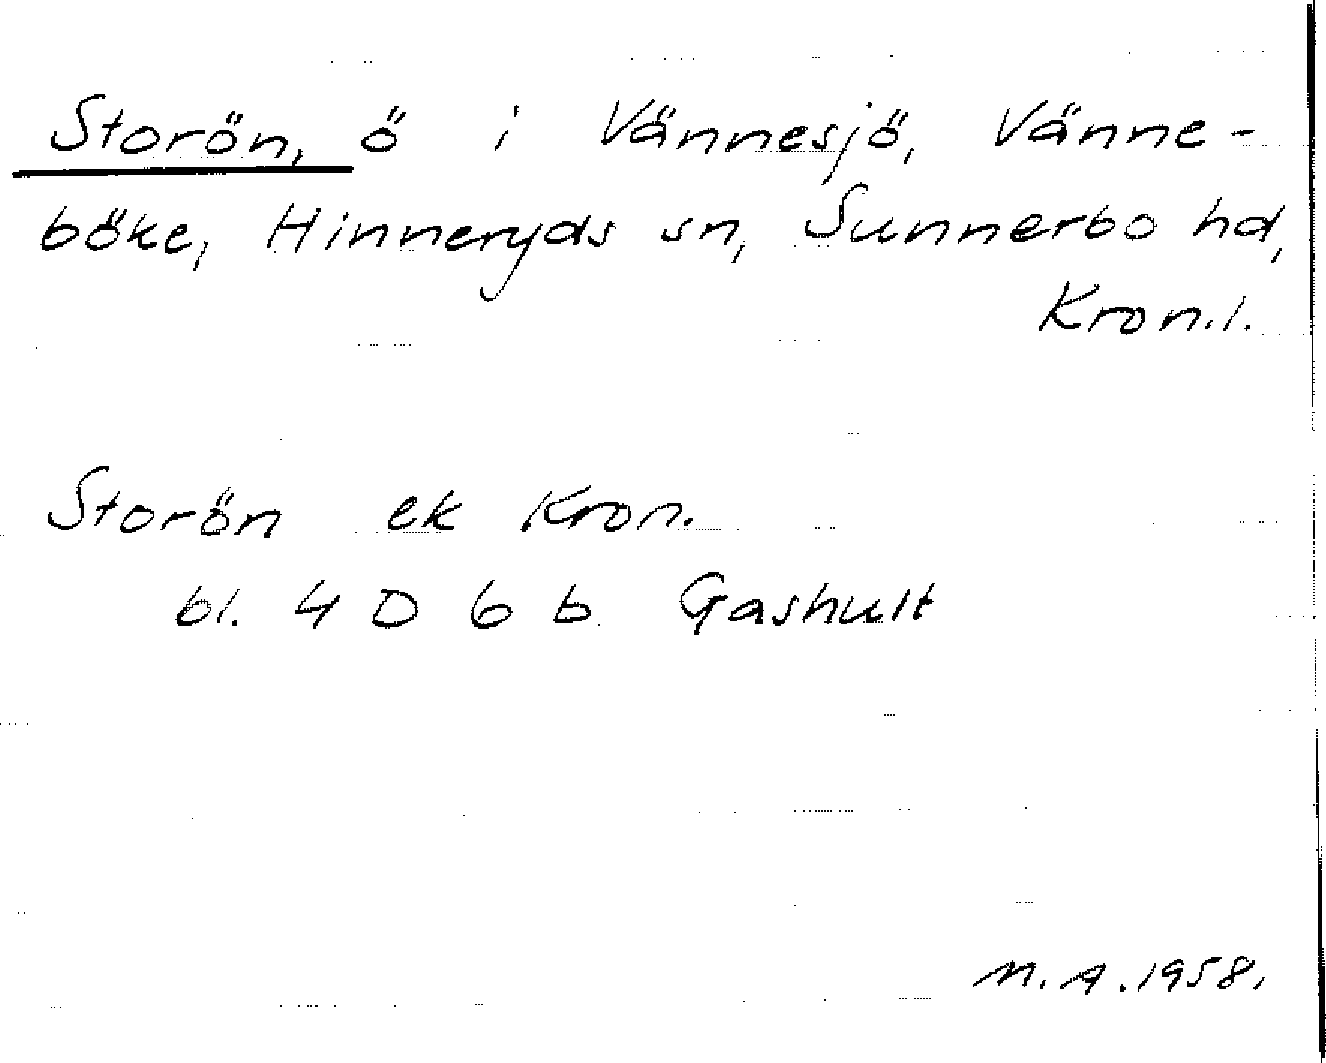 Storön, ö i Vännesjö, Vänne-
böke, Hinneryds sn, Sunnerbo hd,
Kron.l.
Storön ek Kron.
bl. 4 D 6 b Gashult
M.A.1958.